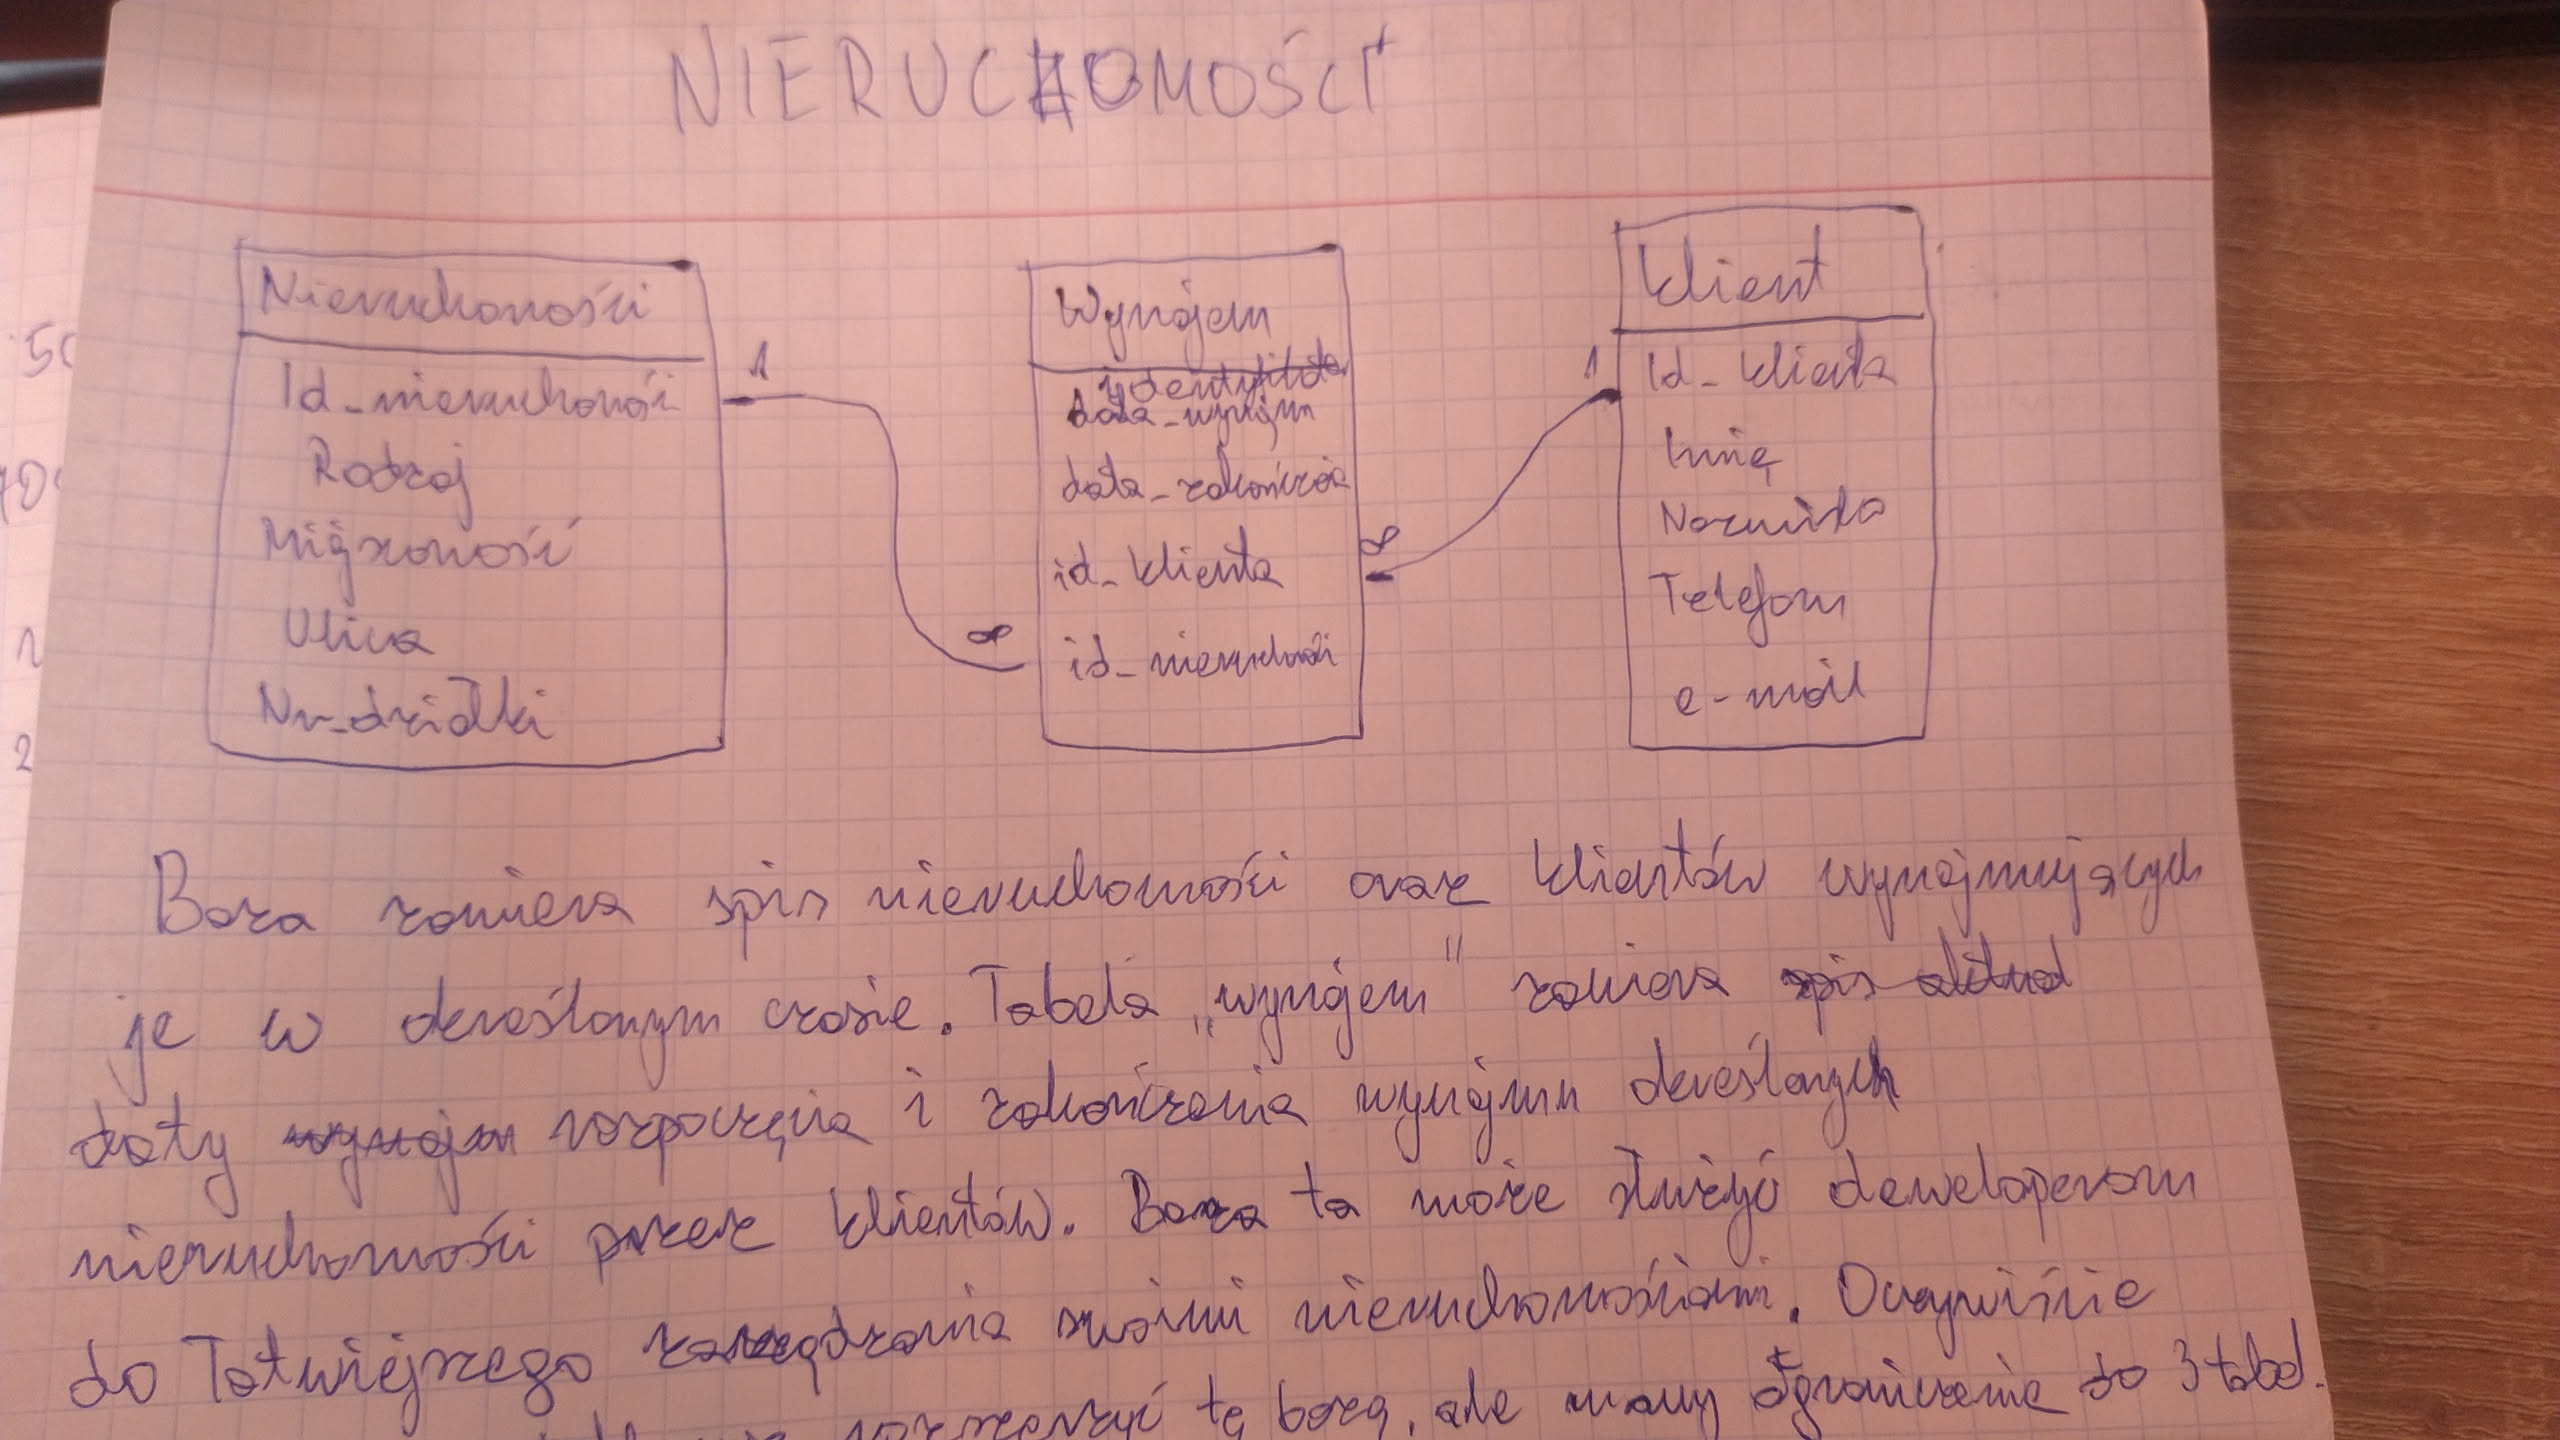 NIERUCHOMOŚCI
Nieruchomości
Id_nieruchomości
Rodzaj
Miejscowość
Ulica
Nr_działki
1
∞
Wynajem
data_wynajmu
id_klienta
id_nieruchomości
∞
1
Klient
Id_klienta
Imię
Nazwisko
Telefon
e-mail
Baza zawiera spis nieruchomości oraz klientów wynajmujących
je w określonym czasie. Tabela „wynajem" zawiera
daty rozpoczęcia i zakończenia wynajmu określonych
nieruchomości przez klientów. Baza ta może służyć deweloperom
do łatwiejszego zarządzania swoimi nieruchomościami. Oczywiście
rozszerzyć tę bazę, ale mamy ograniczenie do 3 tabel.
50
2